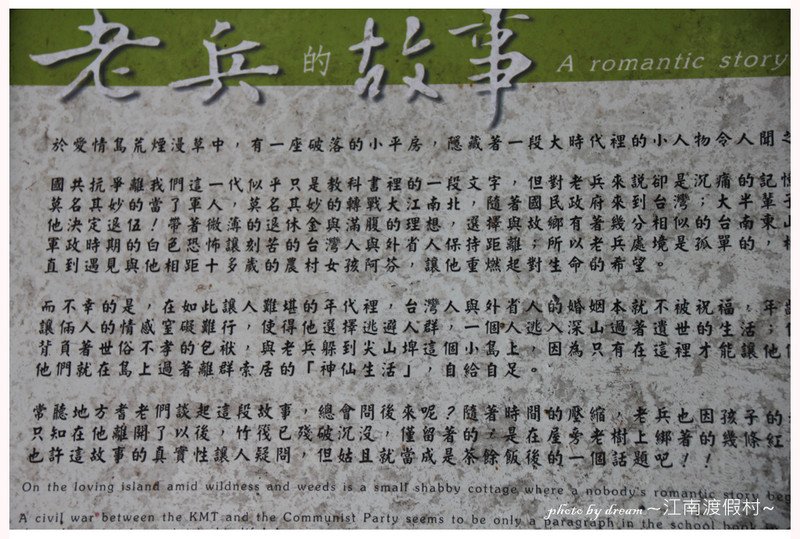 老兵的故事 A romantic story
於愛情島荒煙漫草中，有一座破落的小平房，隱藏著一段大時代裡的小人物令人聞之
國共抗爭離我們這一代似乎只是教科書裡的一段文字，但對老兵來說卻是沉痛的記憶
莫名其妙的當了軍人，莫名其妙的轉戰大江南北，隨著國民政府來到台灣；大半輩子
他決定退伍！帶著微薄的退休金與滿腹的理想，選擇與故鄉有著幾分相似的台南東山
軍政時期的白色恐怖讓刻苦的台灣人與外省人保持距離；所以老兵處境是孤單的，
直到遇見與他相距十多歲的農村女孩阿芬，讓他重燃起對生命的希望。
而不幸的是，在如此讓人難堪的年代裡，台灣人與外省人的婚姻本就不被祝福，年
讓倆人的情感窒礙難行，使得他選擇逃避人群，一個人逃入深山過著遺世的生活；
背負著世俗不孝的包袱，與老兵躲到尖山埤這個小島上，因為只有在這裡才能讓他
他們就在島上過著離群索居的「神仙生活」，自給自足。
常聽地方耆老們談起這段故事，總會問後來呢？隨著時間的壓縮，老兵也因孩子的
只知在他離開了以後，竹筏已殘破沉沒，僅留著的，是在屋旁老樹上綁著的幾條紅
也許這故事的真實性讓人疑問，但姑且就當成是茶餘飯後的一個話題吧！！
On the loving island amid wildness and weeds is a small shabby cottage where a nobody's romantic story beg
A civil war between the KMT and the Communist Party seems to be only a paragraph in the school book
photo by dream ～江南渡假村～